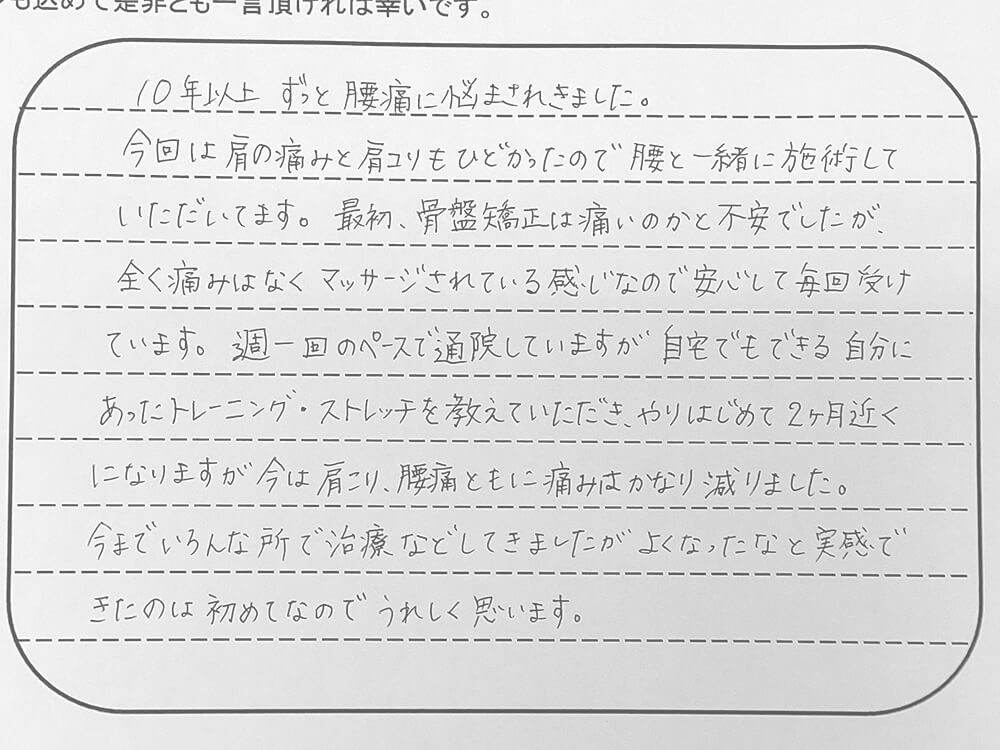 も込めて是非とも一言頂ければ幸いです。
10年以上 ずっと 腰痛に悩まされきました。
今回は肩の痛みと肩コリもひどかったので腰と一緒に施術して
いただいてます。最初、骨盤矯正は痛いのかと不安でしたが、
全く痛みはなくマッサージされている感じなので安心して毎回受け
ています。週一回のペースで通院していますが自宅でもできる自分に
あったトレーニング・ストレッチを教えていただき、やりはじめて2ヶ月近く
になりますが今は肩こり、腰痛ともに痛みはかなり減りました。
今までいろんな所で治療などしてきましたがよくなったなと実感で
きたのは初めてなのでうれしく思います。